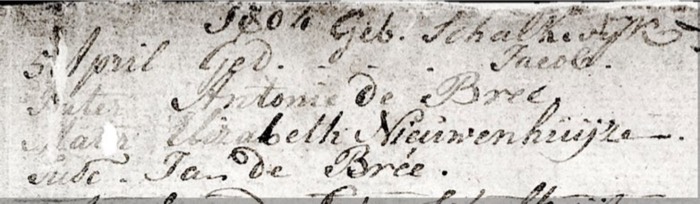 1804 Geb. Schalkwijk
5 April Ged. . . . Jacob.
Pater Antonie de Bree
Mater Elizabeth Nieuwenhuijze.
Susc. Jan de Brée.